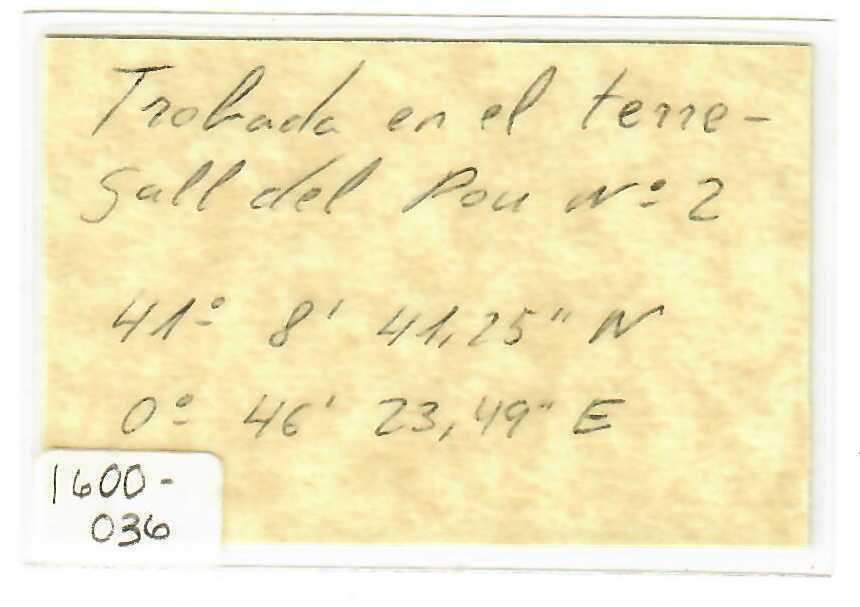 Trobada en el terre-
gall del Pou Nº 2
41º 8' 41,25" N
0º 46' 23,49" E
1600-
036